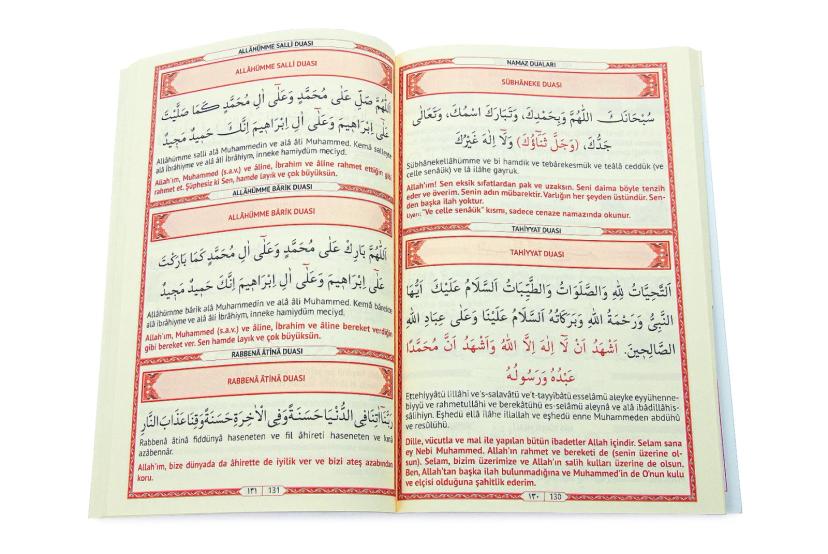 NAMAZ DUALARI
SÜBHÂNEKE DUASI
سُبْحَانَكَ اللّٰهُمَّ وَبِحَمْدِكَ، وَتَبَارَكَ اسْمُكَ، وَتَعَالٰى
جَدُّكَ، (وَجَلَّ ثَنَٓاؤُكَ) وَلَٓا اِلٰهَ غَيْرُكَ
Sübhânekellâhümme ve bi hamdik ve tebârekesmük ve teâlâ ceddük (ve
celle senâük) ve lâ ilâhe gayruk.
Allah'ım! Sen eksik sıfatlardan pak ve uzaksın. Seni daima böyle tenzih
eder ve överim. Senin adın mübarektir. Varlığın her şeyden üstündür. Sen-
den başka ilah yoktur.
Uyarı; "Ve celle senâük" kısmı, sadece cenaze namazında okunur.
TAHİYYAT DUASI
TAHİYYAT DUASI
اَلتَّحِيَّاتُ لِلّٰهِ وَالصَّلَوَاتُ وَالطَّيِّبَاتُ اَلسَّلَامُ عَلَيْكَ اَيُّهَا
النَّبِيُّ وَرَحْمَةُ اللّٰهِ وَبَرَكَاتُهُ اَلسَّلَامُ عَلَيْنَا وَعَلٰى عِبَادِ اللّٰهِ
الصَّالِحِينَ. اَشْهَدُ اَنْ لَٓا اِلٰهَ اِلَّا اللّٰهُ وَاَشْهَدُ اَنَّ مُحَمَّدًا
عَبْدُهُ وَرَسُولُهُ
Ettehiyyâtü lillâhi ve's-salavâtü ve't-tayyibâtü esselâmü aleyke eyyühenne-
biyyü ve rahmetullâhi ve berekâtühü es-selâmü aleynâ ve alâ ibâdillâhis-
sâlihiyn. Eşhedü ellâ ilâhe illallah ve eşhedü enne Muhammeden abdühû
ve resûlühü.
Dille, vücutla ve mal ile yapılan bütün ibadetler Allah içindir. Selam sana
ey Nebi Muhammed. Allah'ın rahmet ve bereketi de (senin üzerine ol-
sun). Selam, bizim üzerimize ve Allah'ın salih kulları üzerine de olsun.
Ben, Allah'tan başka ilah bulunmadığına ve Muhammed'in de O'nun kulu
ve elçisi olduğuna şahitlik ederim.
١٣٠ 130
ALLÂHÜMME SALLİ DUASI
ALLÂHÜMME SALLİ DUASI
اَللّٰهُمَّ صَلِّ عَلٰى مُحَمَّدٍ وَعَلٰٓى اٰلِ مُحَمَّدٍ كَمَا صَلَّيْتَ
عَلٰٓى اِبْرَاهِيمَ وَعَلٰٓى اٰلِ اِبْرَاهِيمَ اِنَّكَ حَمِيدٌ مَجِيدٌ
Allâhümme salli alâ Muhammedin ve alâ âli Muhammed. Kemâ salleyte
alâ ibrâhiyme ve alâ âli İbrâhiym, inneke hamiydüm meciyd.
Allah'ım, Muhammed (s.a.v.) ve âline, İbrahim ve âline rahmet ettiğin gibi
rahmet et. Şüphesiz ki Sen, hamde layık ve çok büyüksün.
ALLÂHÜMME BÂRİK DUASI
ALLÂHÜMME BÂRİK DUASI
اَللّٰهُمَّ بَارِكْ عَلٰى مُحَمَّدٍ وَعَلٰٓى اٰلِ مُحَمَّدٍ كَمَا بَارَكْتَ
عَلٰٓى اِبْرَاهِيمَ وَعَلٰٓى اٰلِ اِبْرَاهِيمَ اِنَّكَ حَمِيدٌ مَجِيدٌ
Allâhümme bârik alâ Muhammedin ve alâ âli Muhammed. Kemâ bârekte
alâ ibrâhiyme ve alâ âli İbrâhiym, inneke hamiydüm meciyd.
Allah'ım, Muhammed (s.a.v.) ve âline, İbrahim ve âline bereket verdiğin
gibi bereket ver. Sen hamde layık ve çok büyüksün.
RABBENÂ ÂTİNÂ DUASI
RABBENÂ ÂTİNÂ DUASI
رَبَّنَٓا اٰتِنَا فِي الدُّنْيَا حَسَنَةً وَفِي الْاٰخِرَةِ حَسَنَةً وَقِنَا عَذَابَ النَّارِ
Rabbenâ âtinâ fiddünyâ haseneten ve fil âhireti haseneten ve kınâ
azâbennâr.
Allah'ım, bize dünyada da âhirette de iyilik ver ve bizi ateş azabından
koru.
١٣١ 131